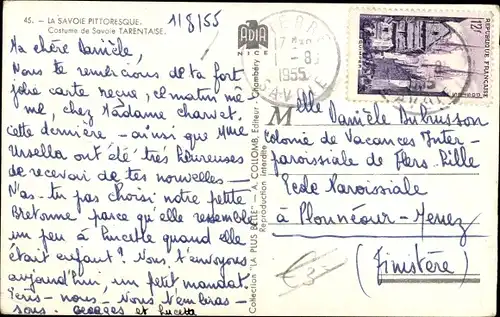 45. - LA SAVOIE PITTORESQUE.
Costume de Savoie TARENTAISE.
1/8/55
Ma chère Danièle,
Nous te remercions de ta fort
jolie carte reçue, ce matin mê-
me, chez Madame Charvet.
Cette dernière - ainsi que Mme
Ursella ont été très heureuses
de recevoir de tes nouvelles -
N'as-tu pas choisi notre petite
Bretonne parce qu'elle ressemble
un peu à Lucette quand elle
était enfant? Nous t'envoyons
aujourd'hui, un petit mandat.
Écris-nous - Nous t'embras-
sons. Georges et Lucette
ADIA
NICE
Collection "LA PLUS BELLE" - A. COLLOMB, Editeur - Chambéry
Reproduction Interdite
1955
REPUBLIQUE FRANÇAISE
12F
QUIMPER
Melle Danièle Dubuisson
Colonie de Vacances Inter-
paroissiale de Flers-Lille
Ecole Paroissiale
à Plounéour-Menez
(Finistère)